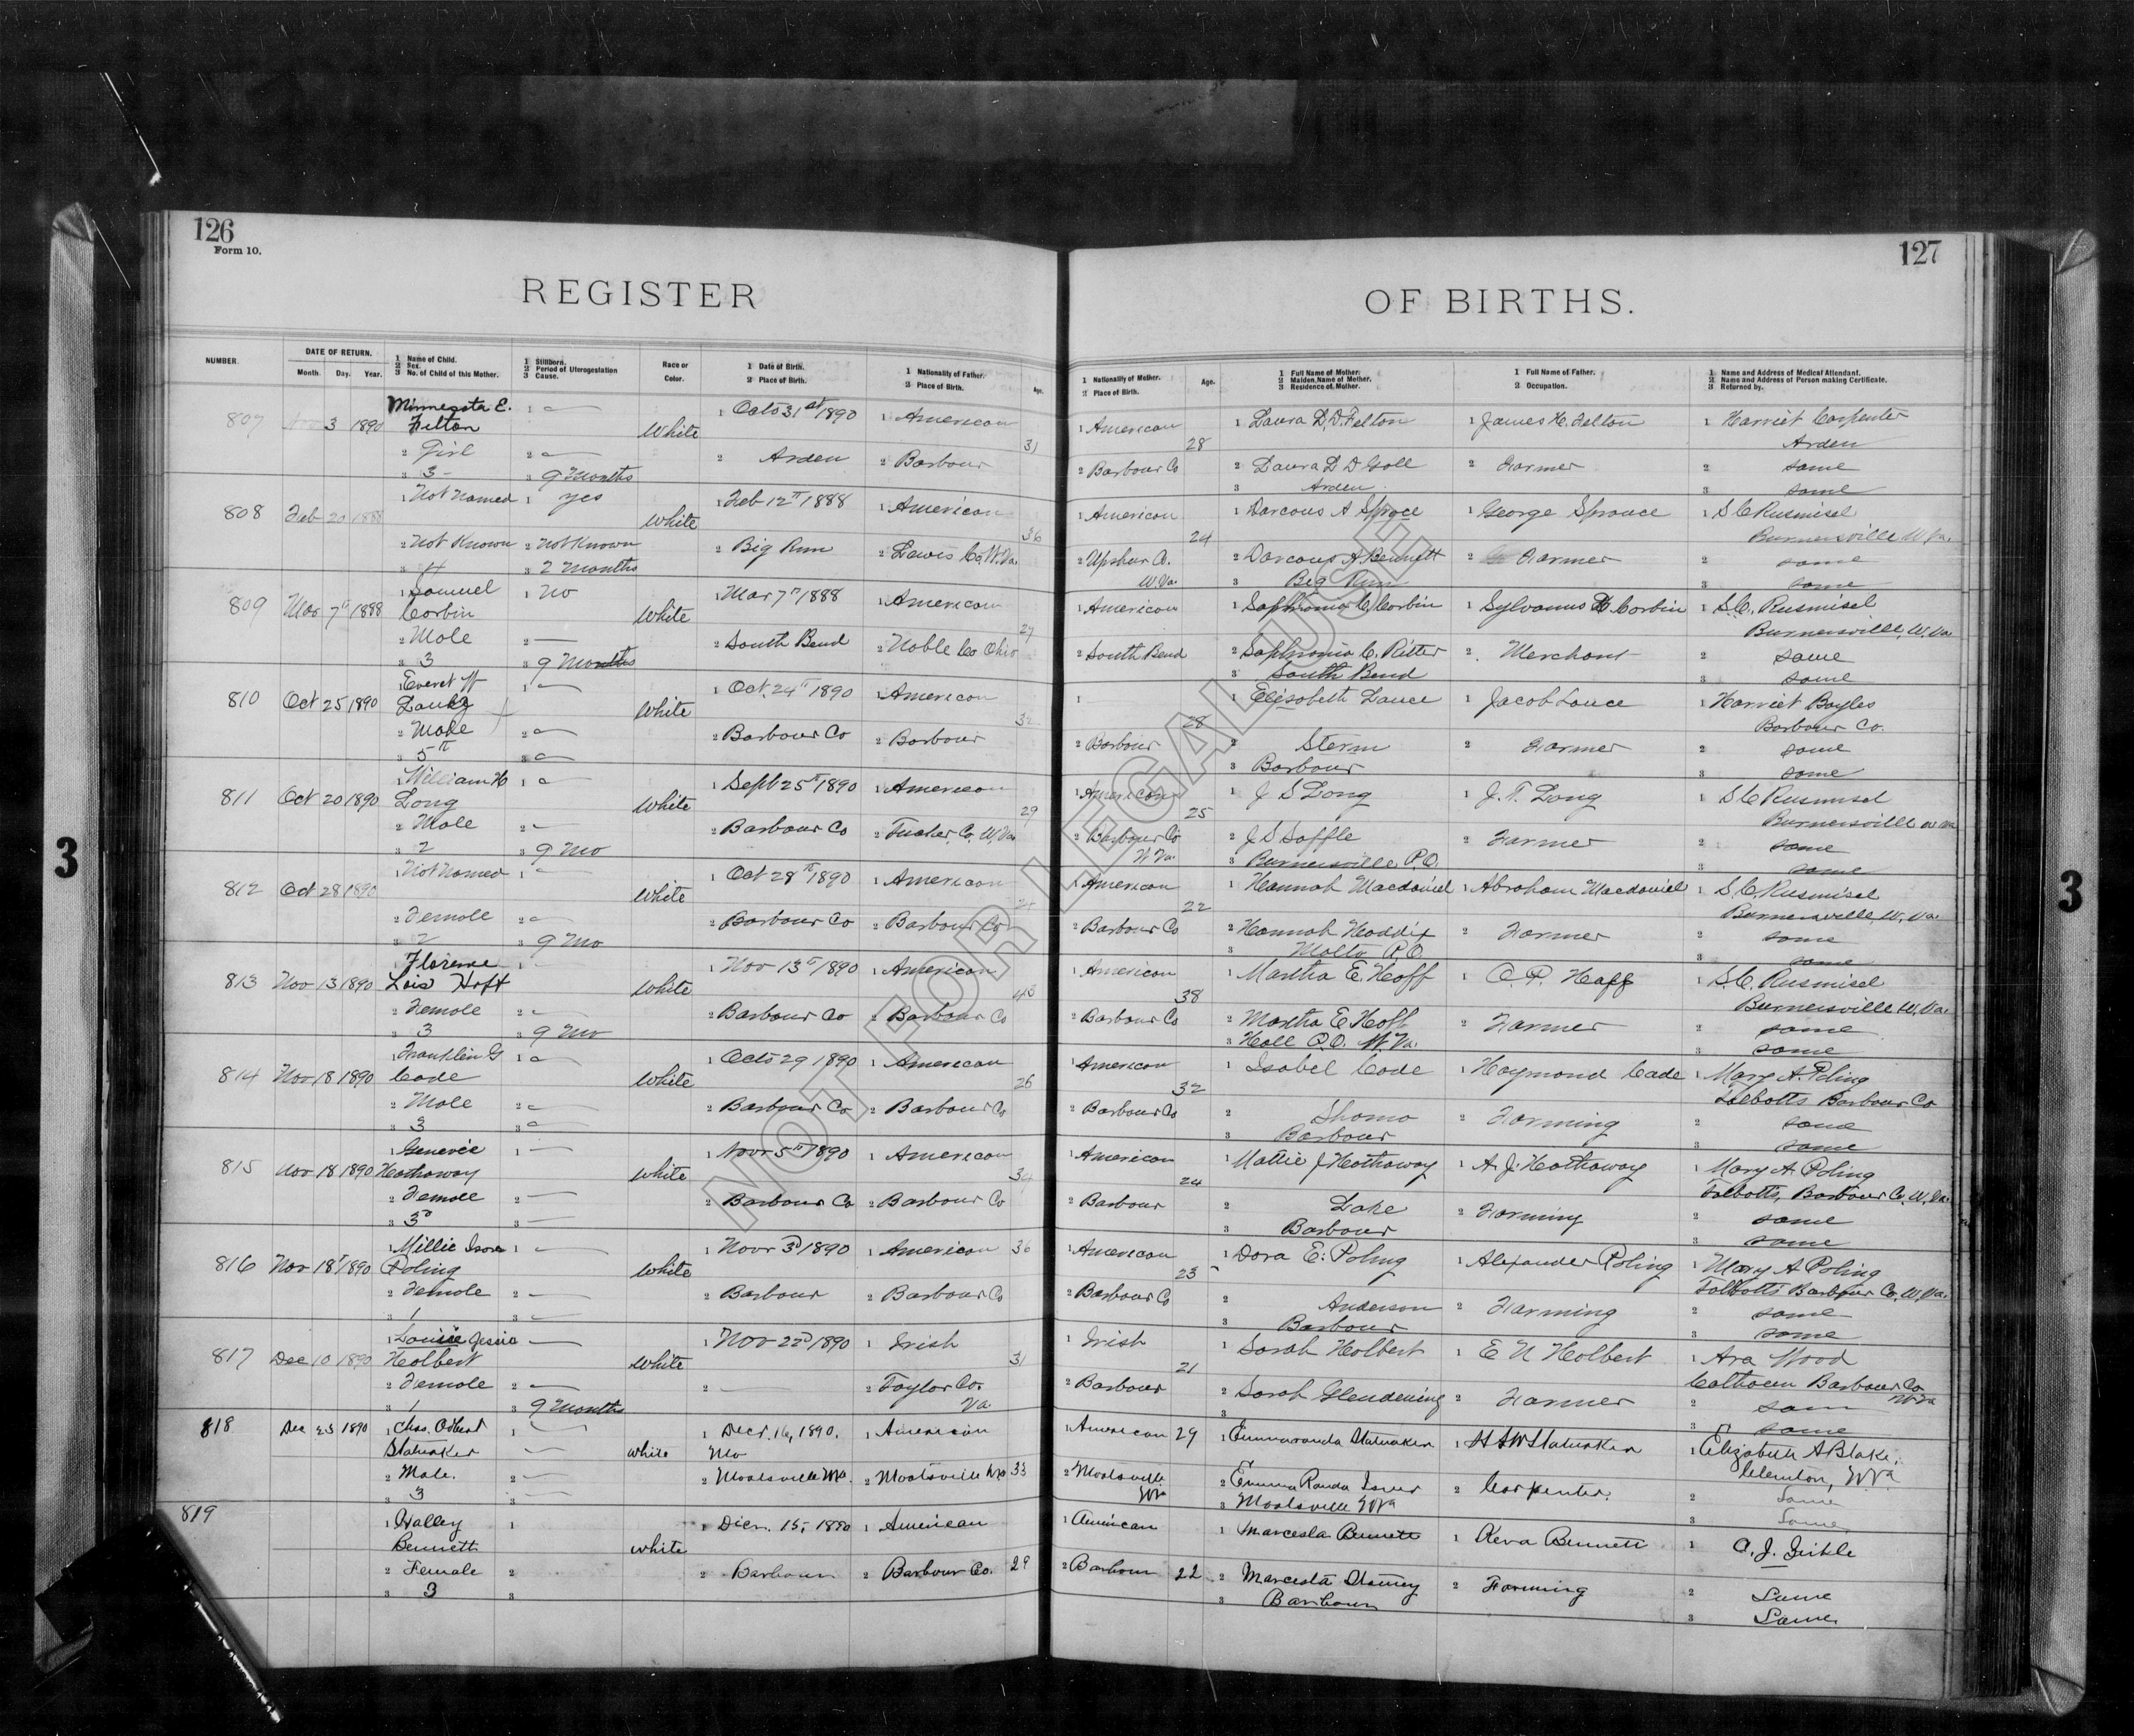 126
Form 10.
REGISTER
NUMBER.
DATE OF RETURN.
Month. Day. Year.
1 Name of Child.
2 Sex.
3 No. of Child of this Mother.
1 Stillborn.
2 Period of Uterogestation
3 Cause.
Race or
Color.
1 Date of Birth.
2 Place of Birth.
1 Nationality of Father.
2 Place of Birth.
Age.
127
OF BIRTHS.
1 Nationality of Mother.
2 Place of Birth.
Age.
1 Full Name of Mother.
2 Maiden Name of Mother.
3 Residence of Mother.
1 Full Name of Father.
2 Occupation.
1 Name and Address of Medical Attendant.
2 Name and Address of Person making Certificate.
3 Returned by.
807 Nov 3 1890 Minnesota E. Felton White 1 Octo 31st 1890 1 American 31 1 American 28 1 Laura D. D. Felton 1 James H. Felton 1 Harriet Carpenter
Arden
2 Girl 2 Arden 2 Barbour 2 Barbour Co 2 Laura D D Goll 2 Farmer 2 same
3 3 3 9 Months 3 Arden 3 same
808 Feb 20 1888 1 Not Named 1 yes White 1 Feb 12th 1888 1 American 36 1 American 24 1 Darcous A Sproce 1 George Sprouce 1 S C Rusmisel
Burnersville W Va.
2 Not Known 2 Not Known 2 Big Run 2 Lewis Co, W. Va. 2 Upshur Co. W Va. 2 Darcous A Bennett 2 Farmer 2 same
3 4 3 2 Months 3 Big Run 3 same
809 Mar 7th 1888 1 Samuel Corbin 1 No White 1 Mar 7th 1888 1 American 27 1 American 1 Sophronia C Corbin 1 Sylvanus Corbin 1 S. C. Rusmisel
Burnersville, W. Va
2 Male 2 South Bend 2 Noble Co Ohio 2 South Bend 2 Sophronia C. Ritter 2 Merchant 2 same
3 3 3 9 Months 3 South Bend 3 same
810 Oct 25 1890 1 Everet W White 1 Oct. 24th 1890 1 American 32 1 28 1 Elisabeth Lance 1 Jacob Lance 1 Harriet Boyles
Barbour Co.
2 Male 2 Barbour Co 2 Barbour 2 Barbour 2 Sterm 2 Farmer 2 same
3 5th 3 Barbour 3 same
811 Oct 20 1890 1 William H Long White 1 Sept 25th 1890 1 American 29 1 American 25 1 J S Long 1 J. T. Long 1 S C Rusmisel
Burnersville W Va
2 Male 2 Barbour Co 2 Tucker, Co, W, Va. 2 Barbour Co W Va. 2 J S Saffle 2 Farmer 2 same
3 2 3 9 Mo 3 Burnersville P. O. 3 same
812 Oct 28 1890 1 Not Named White 1 Oct 28th 1890 1 American 1 American 22 1 Hannah Macdaniel 1 Abraham Macdaniel 1 S. C. Rusmisel
Burnersville, W, Va.
2 Female 2 Barbour Co 2 Barbour Co 2 Barbour Co 2 Hannah Haddix 2 Farmer 2 same
3 2 3 9 Mo 3 P. O 3 same
813 Nov 13 1890 1 Florence Lois Hoff White 1 Nov 13th 1890 1 American 43 1 American 38 1 Martha E. Hoff 1 1 S. C. Rusmisel
Burnersville W. Va.
2 Female 2 Barbour Co 2 Barbour Co 2 Barbour Co 2 Martha E Hoff 2 Farmer 2 same
3 3 3 9 Mo 3 Hall P. O. W Va. 3 same
814 Nov 18 1890 1 Franklin G Cade White 1 Octo 29 1890 1 American 26 1 American 32 1 Isabel Cade 1 Haymond Cade 1 Mary A. Poling
Talbotts Barbour Co
2 Male 2 Barbour Co 2 Barbour Co 2 Barbour Co 2 Shomo 2 Farming 2 same
3 3 3 Barbour 3 same
815 Nov 18 1890 1 Genevie Hathaway White 1 Novr 5th 1890 1 American 34 1 American 24 1 Mattie J Hathaway 1 A. J. Hathaway 1 Mary A Poling
Talbotts, Barbour Co, W, Va.
2 Female 2 Barbour Co 2 Barbour Co 2 Barbour 2 Lake 2 Farming 2 same
3 3d 3 3 Barbour 3 same
816 Nov 18th 1890 1 Millie Poling White 1 Novr 3d 1890 1 American 36 1 American 23 1 Dora E. Poling 1 Alexander Poling 1 Mary A Poling
Talbotts Barbour Co, W, Va.
2 Female 2 Barbour 2 Barbour Co 2 Barbour Co 2 Anderson 2 Farming 2 same
3 1 3 3 Barbour 3 same
817 Dec 10 1890 1 Jessie Holbert White 1 Nov 22d 1890 1 Irish 31 1 Irish 21 1 Sarah Holbert 1 E N Holbert 1 Ara Wood
Calhoun Barbour Co W Va
2 Female 2 2 Taylor Co. Va 2 Barbour 2 Sarah Glendening 2 Farmer 2 sam
3 1 3 9 Months 3 3 same
818 Dec 23 1890 1 Chas. Odbert Stalnaker 1 white 1 Decr. 16, 1890. 1 American 33 1 American 29 1 Emmaranda Stalnaker 1 H A W Stalnaker 1 Elizabeth A Blake,
Clemton, W Va
2 Male. 2 2 Moatsville Wva. 2 Moatsville Wva 2 Moatsville Wva 2 Emma Randa Isner 2 Carpenter. 2 Same
3 3 3 3 Moatsville W Va 3 Same
819 1 Halley Bennett 1 white 1 Decr. 15, 1890 1 American 29 1 American 22 1 Marcesla Bennett 1 Reva Bennett 1 A. J. Zirkle
2 Female 2 2 Barbour 2 Barbour Co. 2 Barbour 2 Marcesla 2 Farming 2 Same
3 3 3 3 Barbour 3 Same
3
3
NOT FOR LEGAL USE